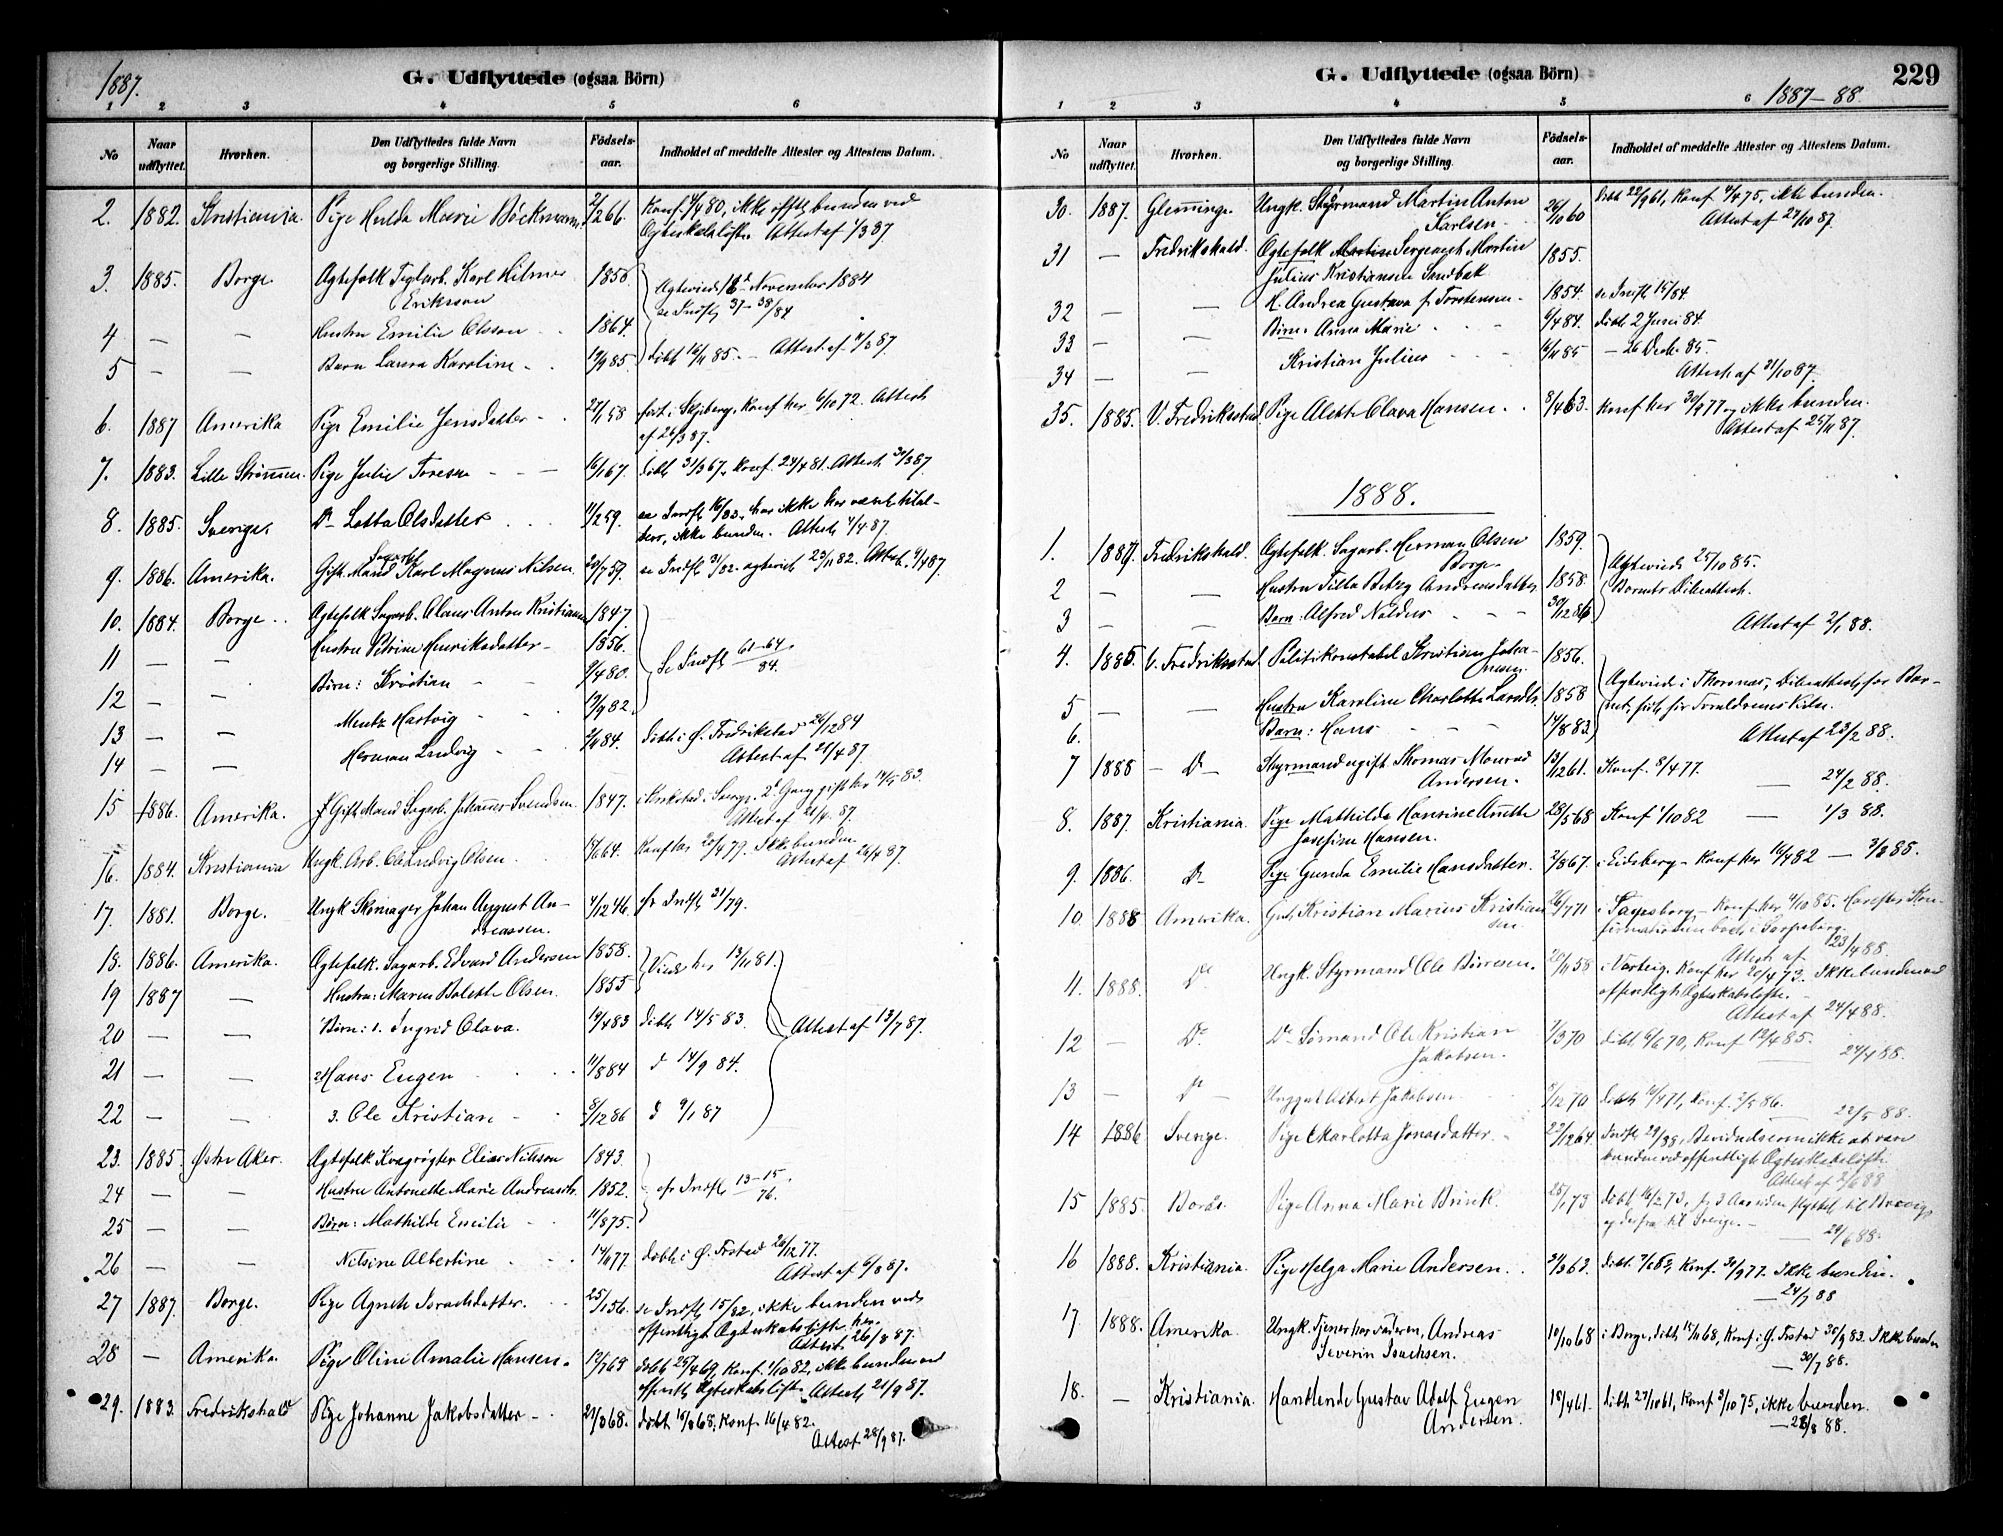 1887.
G. Udflyttede (ogsaa Börn)
1 2 3 4 5 6
No
Naar udflyttet.
Hvorhen.
Den Udflyttedes fulde Navn og borgerlige Stilling.
Födsels-aar.
Indholdet af meddelte Attester og Attestens Datum.
2. 1882. Kristiania. Pige Hulda Marie Böckmann. 2/2 66. Konf. 4/4 80, ikke offtl. bunden ved
Ægteskabsløfte. Attest af 1/3 87
3. 1885. Borge. Ægtefolk Teglarb. Karl Hilmer 1856 Ægteviede 18d November 1884
Eriksson se Indfl. 37-38/84
4 — — Hustru Emilie Olsson 1864.
5 — — Barn Laura Karoline 19/9 85. döbt 16/11 85. — Attest af 11/3 87.
6. 1887 Amerika Pige Emilie Jensdatter 27/1 58 föt i Skjeberg. Konf her 6/10 72. Attest
af 26/3 87.
7. 1883. Lille Strömmen. Pige Julie Toresen 16/1 67. döbt 31/3 67. Konf. 24/4 81. Attest 30/3 87.
8. 1885. Sverige. Do Lotta Olsdatter 11/2 59. se Indfl 16/83. har ikke her været til al-
ters, ikke bunden. Attest 1/4 87.
9. 1886. Amerika. Gift Mand Sagarb Karl Magnus Nilsen. 20/7 59. se Indfl 31/82. ægteviet 23/11 82. Attest. 4/4 87.
10. 1884. Borge. Ægtefolk Sagarb. Olaus Anton Kristiansen 1847.
11 — — Hustru Petrine Henriksdatter 1856. Se Indfl 61-64/84.
12 — — Börn: Kristian 9/4 80.
13 — — Mentz Hartvig 19/9 82.
14 — — Herman Ludvig 2/11 84. döbt i Ø. Fredrikstad 26/12 84
Attest af 21/4 87.
15 1886. Amerika. Gift Mand Sagarb. Johannes Svendsen. 1847. 2d Gang gift her 14/5 83.
Attest af 21/4 87.
16. 1884. Kristiania Ungk. Arb. Ole Ludvig Olsen. 17/6 64. Konf her 20/4 79. Ikke bunden.
Attest af 26/4 87.
17. 1881. Borge. Ungk Skomager Johan August An- 4/12 46. fr Indfl 21/79.
dreassen.
18. 1886. Amerika. Ægtefolk. Sagarb. Edvard Andersen 1858. Viede her 13/11 81.
19 1887 — Hustru: Maren Bolette Olsen. 1855
20 — — Börn: 1. Ingrid Olava. 19/4 83 döbt 14/5 83. Attest af 13/7 87.
21 — — 2 Hans Eugen 11/8 84 d 14/9 84.
22 — — 3. Ole Kristian 8/12 86 d 9/1 87
23. 1885. Østre Aker. Ægtefolk Kvægrögter Elias Nilsson 1843.
24 — — Hustru Antonette Marie Andreasdt. 1852. cfr Indfl 13-15/76.
25 — — Börn: Mathilde Emilie 11/8 75.
26 — — Nilsine Albertine 14/11 77. döbt i Ø. Frstad 26/12 77.
Attest af 6/8 87.
27 1887. Borge. Pige Agneth Israelsdatter. 25/1 56. se Indfl 15/82, ikke bunden ved
offentligt Ægteskabslöfte her.
Attest 26/8 87.
28 — Amerika. Pige Oline Amalie Hansen. 12/7 69 döbt 25/4 69, Konf. 1/10 82, ikke bunden ved
offentl. Ægteskabslöfte. Attest 21/9 87.
29. 1883. Fredrikshald Pige Johanne Jakobsdatter 21/3 68. döbt 10/8 68, Konf 16/4 82.
Attest 28/9 87.
G. Udflyttede (ogsaa Börn)
229
1887-88.
1 2 3 4 5 6
No
Naar udflyttet.
Hvorhen.
Den Udflyttedes fulde Navn og borgerlige Stilling.
Födsels-aar.
Indholdet af meddelte Attester og Attestens Datum.
30. 1887. Glemminge. Ungk. Styrmand Martin Anton 26/10 60 Döbt 22/9 61, Konf 4/4 75, ikke bunden.
Karlsen. Attest af 27/10 87.
31 — Fredrikshald. Ægtefolk Sergeant Martin 1855.
Julius Kristiansen Sandbæk
32 — — H. Andrea Gustava f. Torstensen 1854. se Indfl 15/84.
33 — — Börn: Anna Marie 6/4 84. döbt 2 Juni 84.
34 — — Kristian Julius 16/11 85 — 26 Decb. 85.
Attest af 31/10 87
35. 1885. V. Fredrikstad. Pige Alette Olava Hansen. 8/4 63. Konf her 30/9 77 og ikke bunden.
Attest af 25/11 87.
1888.
1. 1887. Fredrikshald. Ægtefolk. Sagarb. Herman Olsen 1859.
Borge. Ægteviede 25/10 85.
2 — — Hustru Tilla Betzy Andreasdatter 1858. Barnets Döbeattest.
3 — — Barn: Alfred Nilseus 30/12 86
Attest af 2/1 88.
4. 1885. V. Fredrikstad Politikonstabel Kristian Joha- 1856.
nesen. Ægteviede i Thomas, Döbeattest for Bar-
5 — — Hustru Karoline Charlotte 1858
6. — — Barn: Hans 14/8 83. Attest af 23/2 88.
7 1888 — D — Styrmand ugift. Thomas Monrad 13/12 61. Konf. 8/4 77.
Andersen. — 24/2 88.
8. 1887. Kristiania. Pige Mathilde Hansine Anette 28/5 68 Konf 1/10 82 — 1/3 88.
Josefine Hansen.
9. 1886. Do Pige Gunda Emilie Hansdatter. 2/8 67. i Eidsberg — Konf her 16/4 82 — 3/3 88.
10. 1888 Amerika. Gut Kristian Marius Kristian- 26/7 71 i Sarpsborg — Konf her 4/10 85.
sen
Attest af 23/4 88.
11. 1888. Do Ungk. Styrmand Ole Börresen. 20/11 58 i Varteig. Konf her 20/4 73. Ikke bunden ved
offentligt Ægteskabslöfte.
Attest af 24/4 88.
12 — Do Do Sömand Ole Kristian 7/3 70 döbt 6/6 70, Konf 12/4 85.
Jakobsen. 24/4 88.
13 — D — Jakobsen 3/12 70 döbt 10/4 71, Konf. 2/5 86.
— 22/5 88.
14 1886 Sverige. Pige Charlotta Jonasdatter. 22/12 64 Indfl 29/88. Bevidnelse om ikke at være
bunden ved offentligt Ægteskabslöfte
Attest af 2/6 88
15 1885. Borås. Pige Anna Marie Brink. 25/1 73 Döbt 16/2 73, for 3 Aar siden flyttet til
og derfra til Sverige. — 29/6 88.
16 1888. Kristiania. Pige Helga Marie Andersen. 31/3 62. döbt 7/6 62, Konf. 30/9 77. Ikke bunden.
— 24/7 88
17. 1888. Amerika. Ungk. Tjener hos Faderen, Andreas 10/10 68 i Borge, döbt 15/11 68, Konf. i Ø. Frstad 30/9 83. Ikke bunden
Severin Isachsen. — 30/7 88.
18. — Kristiania. Handlende Gustav Adolf Eugen 18/4 61. döbt 27/10 61, Konf 3/10 75, ikke bunden.
Andersen. — 28/8 88.